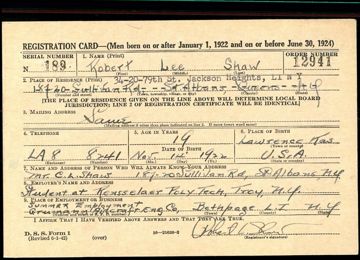 REGISTRATION CARD—(Men born on or after January 1, 1922 and on or before June 30, 1924)
SERIAL NUMBER 1. NAME (Print) ORDER NUMBER
189 Robert Lee Shaw 12941
(First) (Middle) (Last)
34-20-79th St. Jackson Heights, L I N Y
2. PLACE OF RESIDENCE (Print)
Sullivan Rd. St Albans Queens N.Y.
[THE PLACE OF RESIDENCE GIVEN ON THE LINE ABOVE WILL DETERMINE LOCAL BOARD
JURISDICTION; LINE 2 OF REGISTRATION CERTIFICATE WILL BE IDENTICAL]
3. MAILING ADDRESS
Same
4. TELEPHONE 5. AGE IN YEARS 6. PLACE OF BIRTH
19 Lawrence Kas
LA 8 8241 Nov. 14 1922 U.S.A.
7. NAME AND ADDRESS OF PERSON WHO WILL ALWAYS KNOW YOUR ADDRESS
Mr C.L. Shaw Sullivan Rd, St Albans N.Y.
8. EMPLOYER'S NAME AND ADDRESS
Student at Rensselaer Poly Tech, Troy, N.Y.
9. PLACE OF EMPLOYMENT OR BUSINESS
Summer Employment
Grumman Aircraft Eng Co, Bethpage L.I N.Y
I AFFIRM THAT I HAVE VERIFIED ABOVE ANSWERS AND THAT THEY ARE TRUE.
D. S. S. Form 1
(Revised 6-9-42) (over) (Registrant's signature)